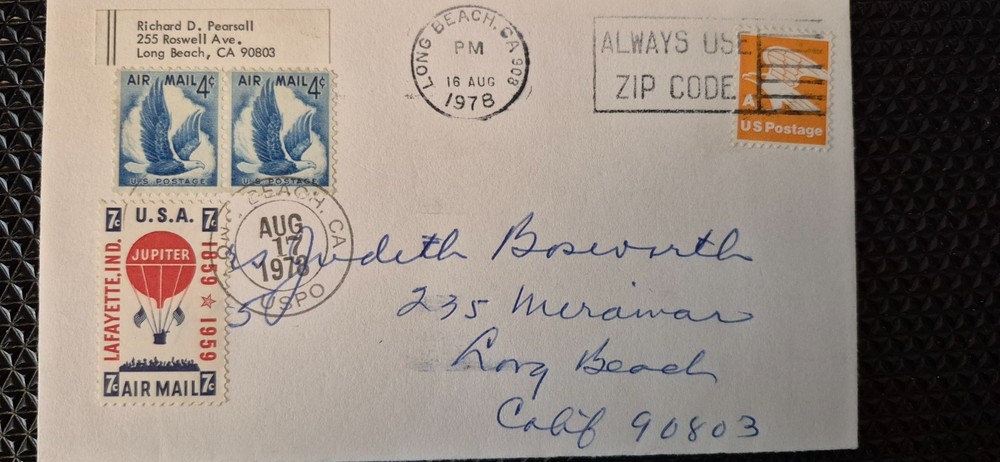 Richard D. Pearsall
255 Roswell Ave.
Long Beach, CA 90803
LONG BEACH, CA 908
PM
16 AUG
1978
ALWAYS USE
ZIP CODE
A
US Postage
AIR MAIL 4¢
U.S. POSTAGE
AIR MAIL 4¢
U.S. POSTAGE
BEACH, CA
AUG
17
1978
USPO
7¢ U.S.A. 7¢
LAFAYETTE, IND.
JUPITER
1859 ★ 1959
7¢ AIR MAIL 7¢
Judeth Bosworth
235 Merawar
Long Beach
Calif 90803